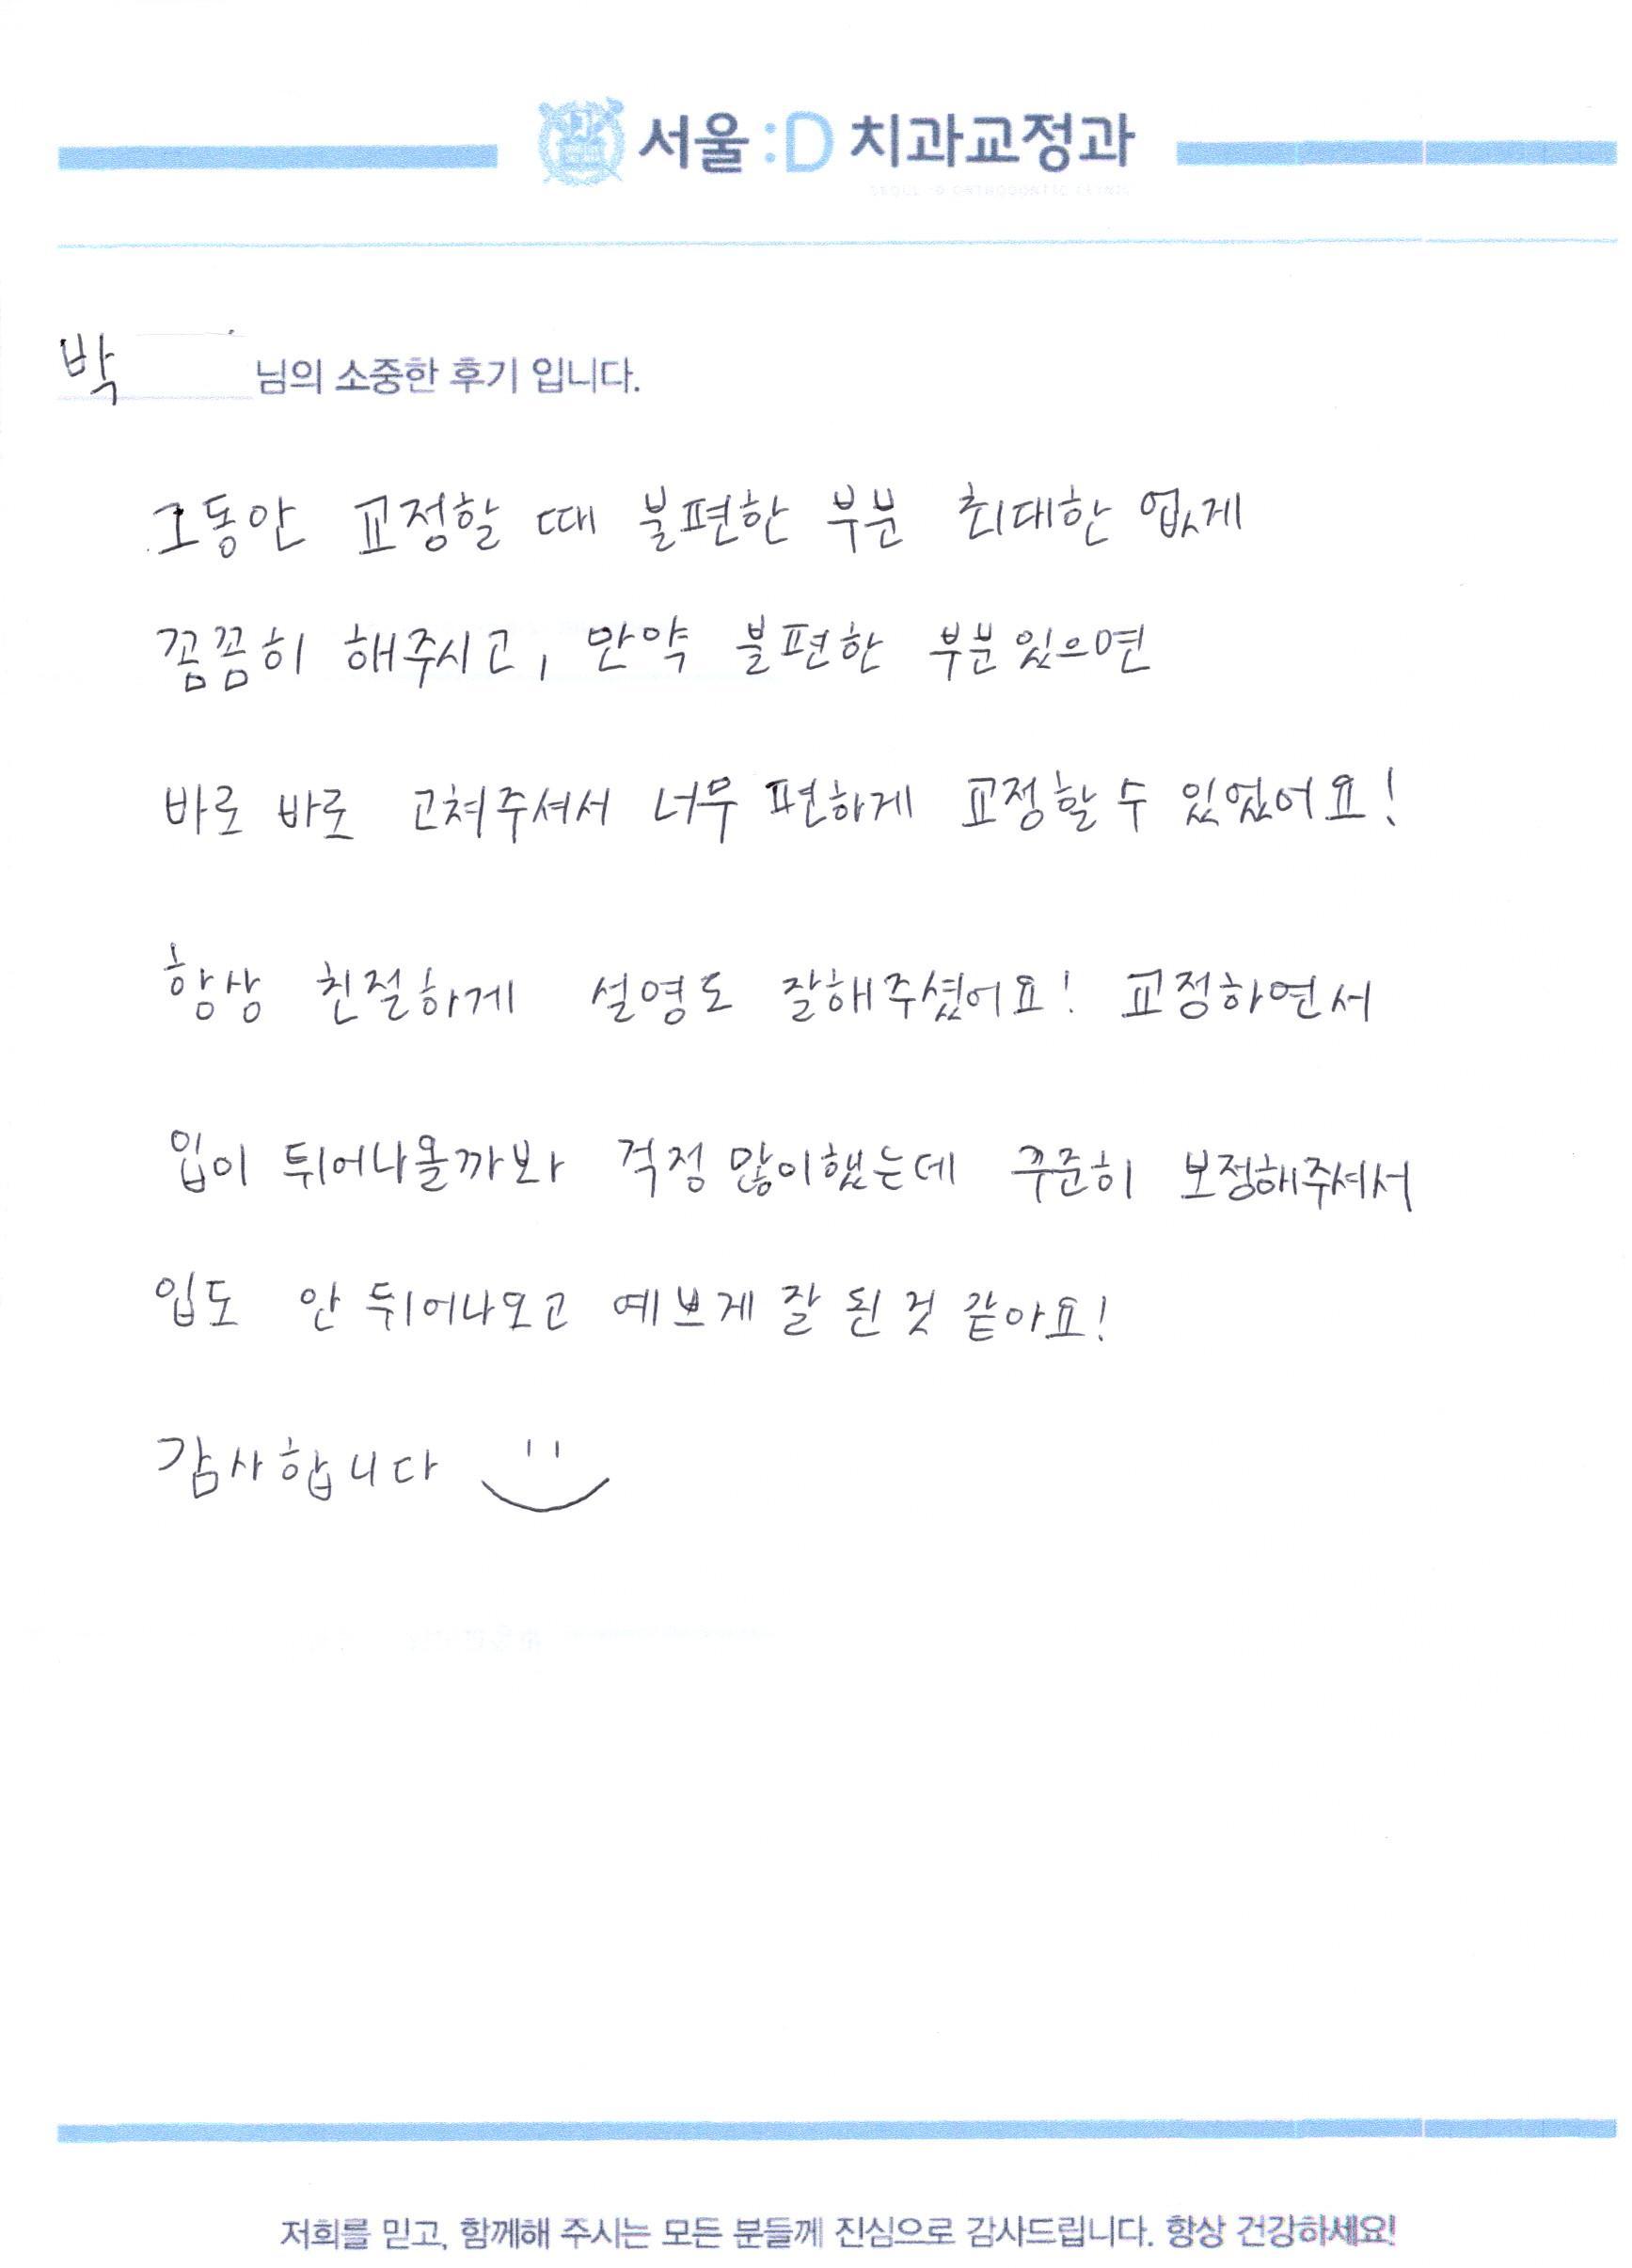 서울:D치과교정과
박 님의 소중한 후기 입니다.
그동안 교정할 때 불편한 부분 최대한 없게
꼼꼼히 해주시고, 만약 불편한 부분있으면
바로 바로 고쳐주셔서 너무 편하게 교정할 수 있었어요!
항상 친절하게 설명도 잘해주셨어요! 교정하면서
입이 튀어나올까봐 걱정 많이했는데 꾸준히 보정해주셔서
입도 안 튀어나오고 예쁘게 잘 된 것 같아요!
감사합니다
저희를 믿고, 함께해 주시는 모든 분들께 진심으로 감사드립니다. 항상 건강하세요!